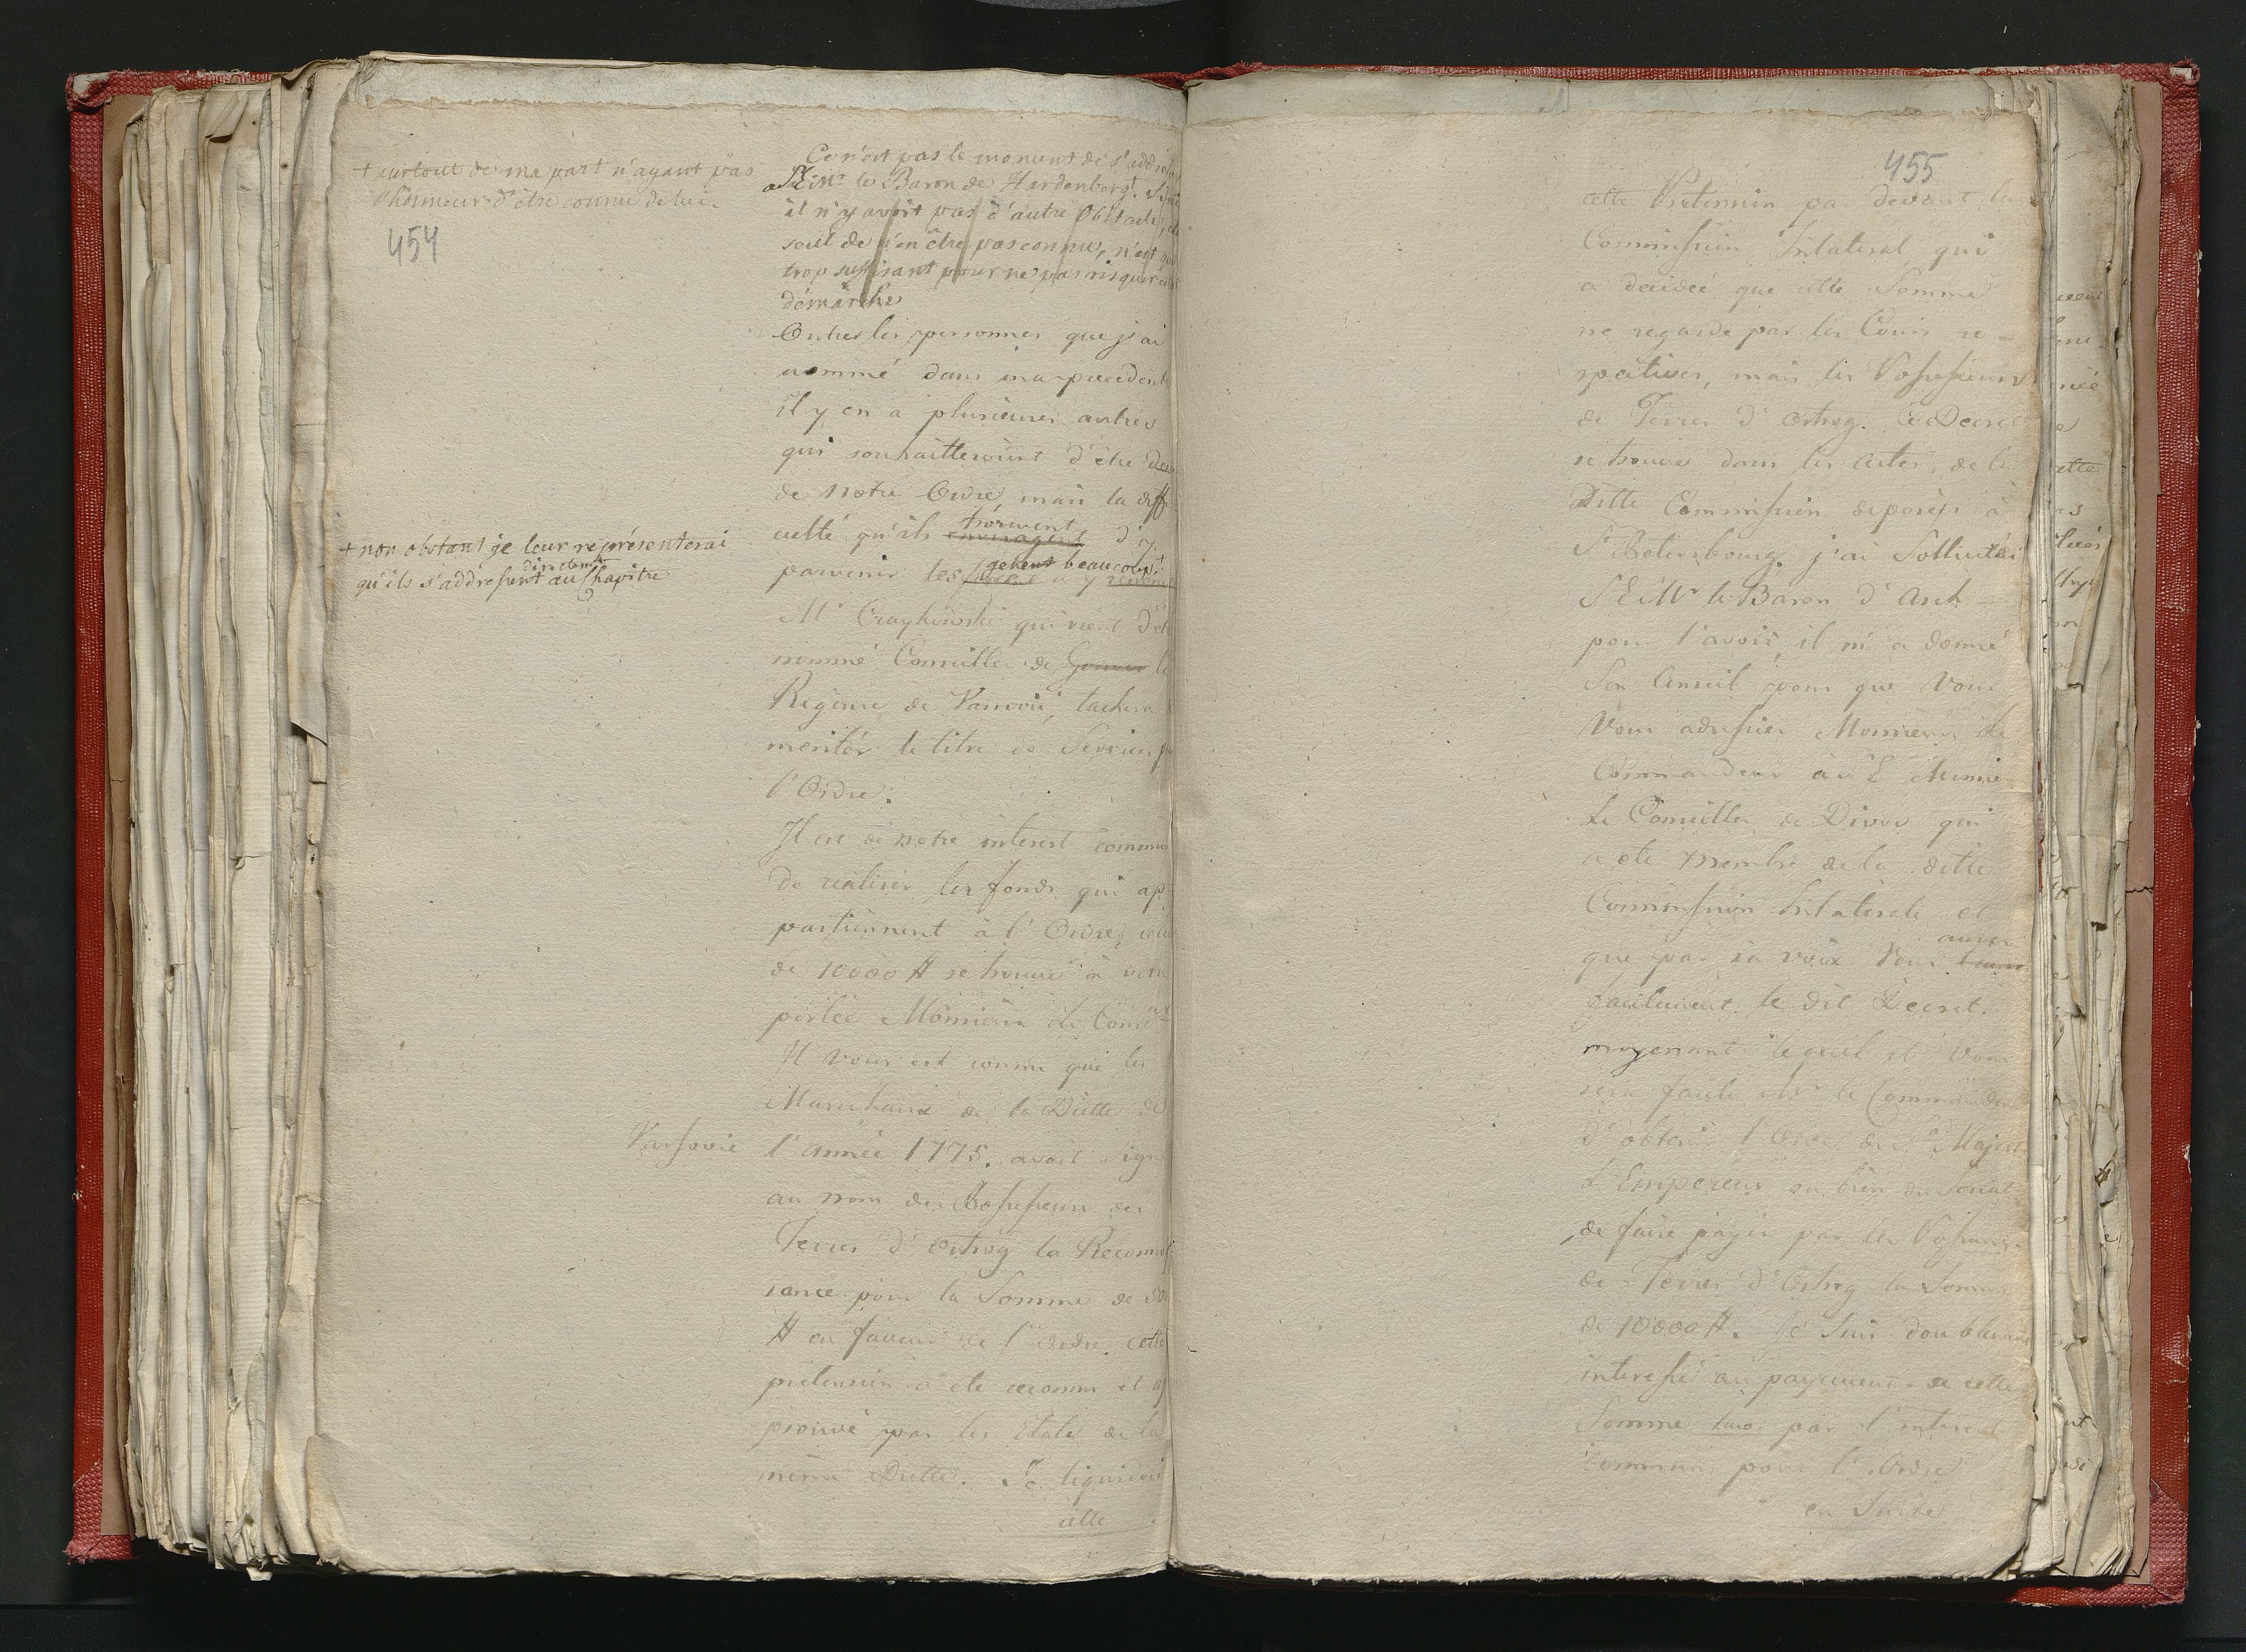 + surtout de ma part n'ayant pas
l'honneur d'être connu de lui.
454
Ce n'est pas le moment de s'addresser
a S E Mr le Baron de Hardenberg. Si
il n'y avoit pas d'autre Obstacle,
seul de n'en être pas connu, n'est que
trop suffisant pour ne pas risquer
démarche
Outres les personnes que j'ai
nommé dans ma precedente
il y en a plusieurs autres
qui souhaitteroient d'être
de notre Ordre, mais la diffi
trouvent
culté qu'ils envisagent d'y
gênent beaucoup. +
parvenir les
+ non obstant je leur représenterai
directement
qu'ils s'addressent au Chapitre
Mr Czaykowski qui vient d'êt
nommé Conseiller de la
Regence de Varsovie, tachera
meritér le titre de Service
l'Ordre.
Il est de notre interest commun
de realiser les fonds qui ap
partiennent à l'Ordre, celui
de 10000 # se trouve à votre
portée Monsieur le Comdr
Il vous est connu que les
Marechaux de la Diette de
Varsovie l'année 1775. avait signé
au nom des Possesseurs des
Terres d'Ostrog la Reconnois
sance pour la Somme de
# en faveur de l'ordre. cette
pretension a eté reconnu et ap
prouvé par les Etats de la
même Diette. Je liquidois
cette
455
cette Pretension par devant la
Commission trilateral, qui
a decidée que cette Somme
ne regarde pas les Cours re-
spectives, mais les Possesseurs
de Terres d'Ostrog. Ce Decret
se trouve dans les Actes de la
Ditte Commission deposés à
St Petersbourg. j'ai Sollicitéé
S E Mr le Baron d'Asch
pour l'avoir, il m'a donné
Son Conseil pour que Vous
Vous adressiez Monsieur le
Commandeur à S E Monsie
Le Conseiller de Divov qui
a eté membre de la ditte
Commission trilaterale et
aurez
que par sa voix Vous
facilement le dit Decret.
moyenant lequel il Vous
sera facile Mr le Commandeur
d'obtenir l'Ordre de Sa Majesté
L'Empereur ou bien du Senat
de faire payer par les Possess.
de Terres d'Ostrog la Somme
de 10000 #. Je Suis doublement
interessé au payement de cette
Somme 1mo par l'interest
commun pour l'Ordre
en Suite